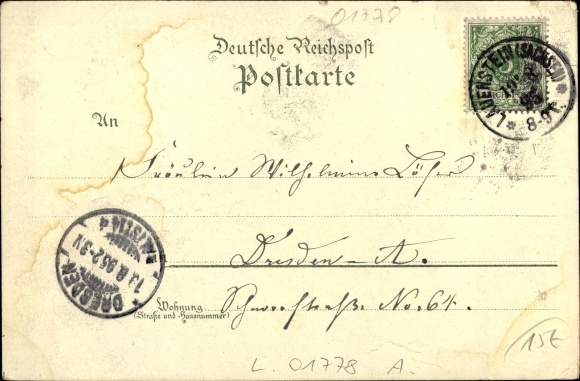 01778
Deutsche Reichspost
Postkarte
LAUENSTEIN (SACHSEN)
8-9V.
An
Fräulein Wilhelmine
Dresden-A.
DRESDEN
Wohnung
(Straße und Hausnummer)
No. 64.
15€
L. 01778 A.